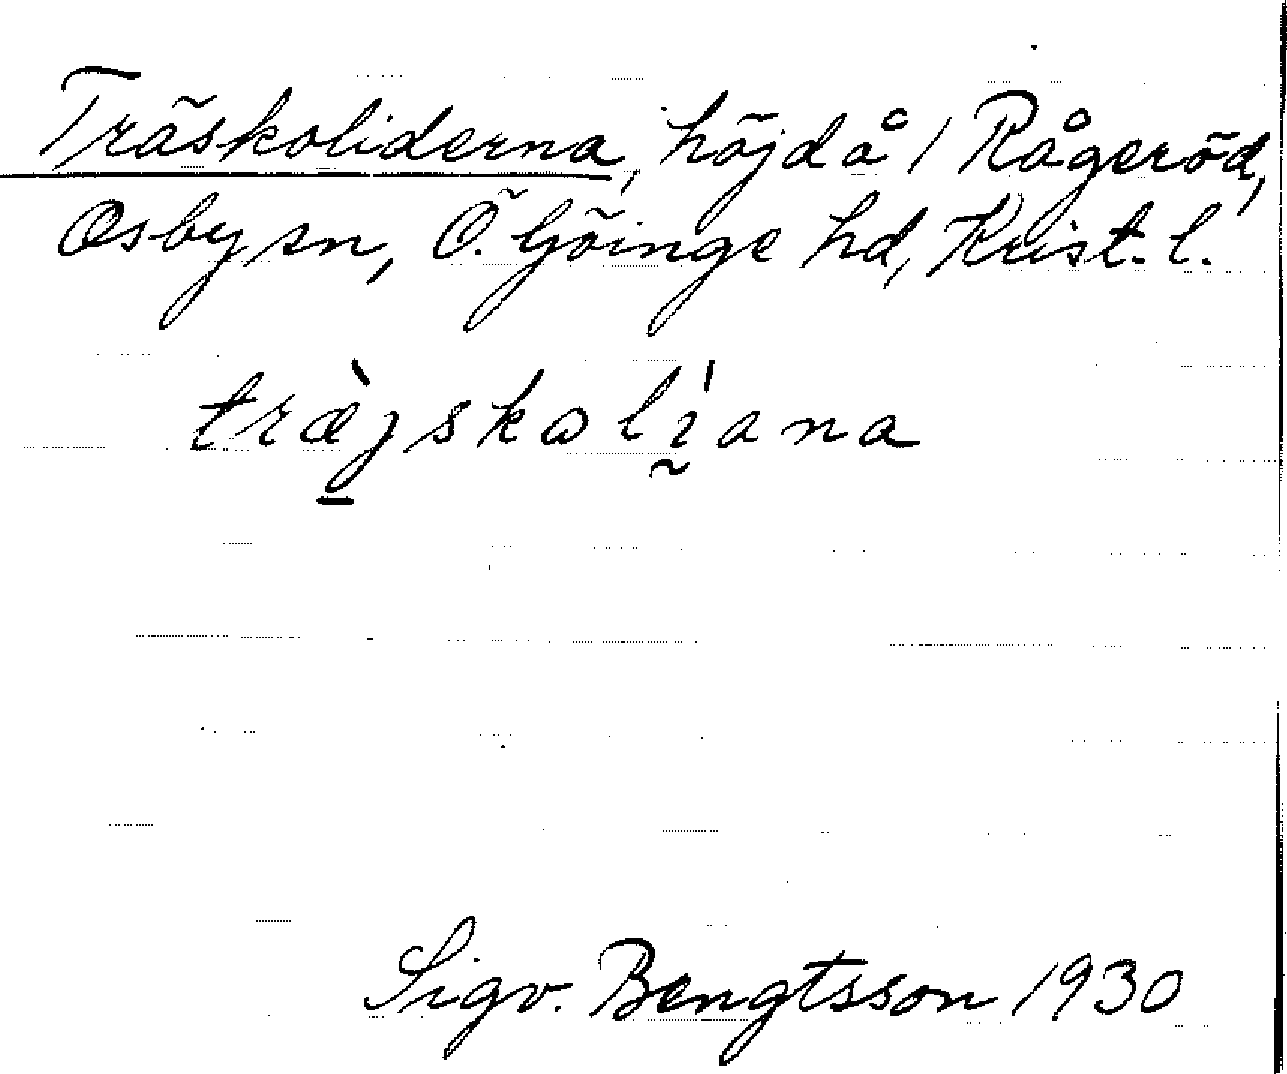 Träskoliderna, höjd å 1 Rågeröd,
Osby sn, Ö. Göinge hd, Krist. l.
træ̀jskolíana
Sigv. Bengtsson 1930